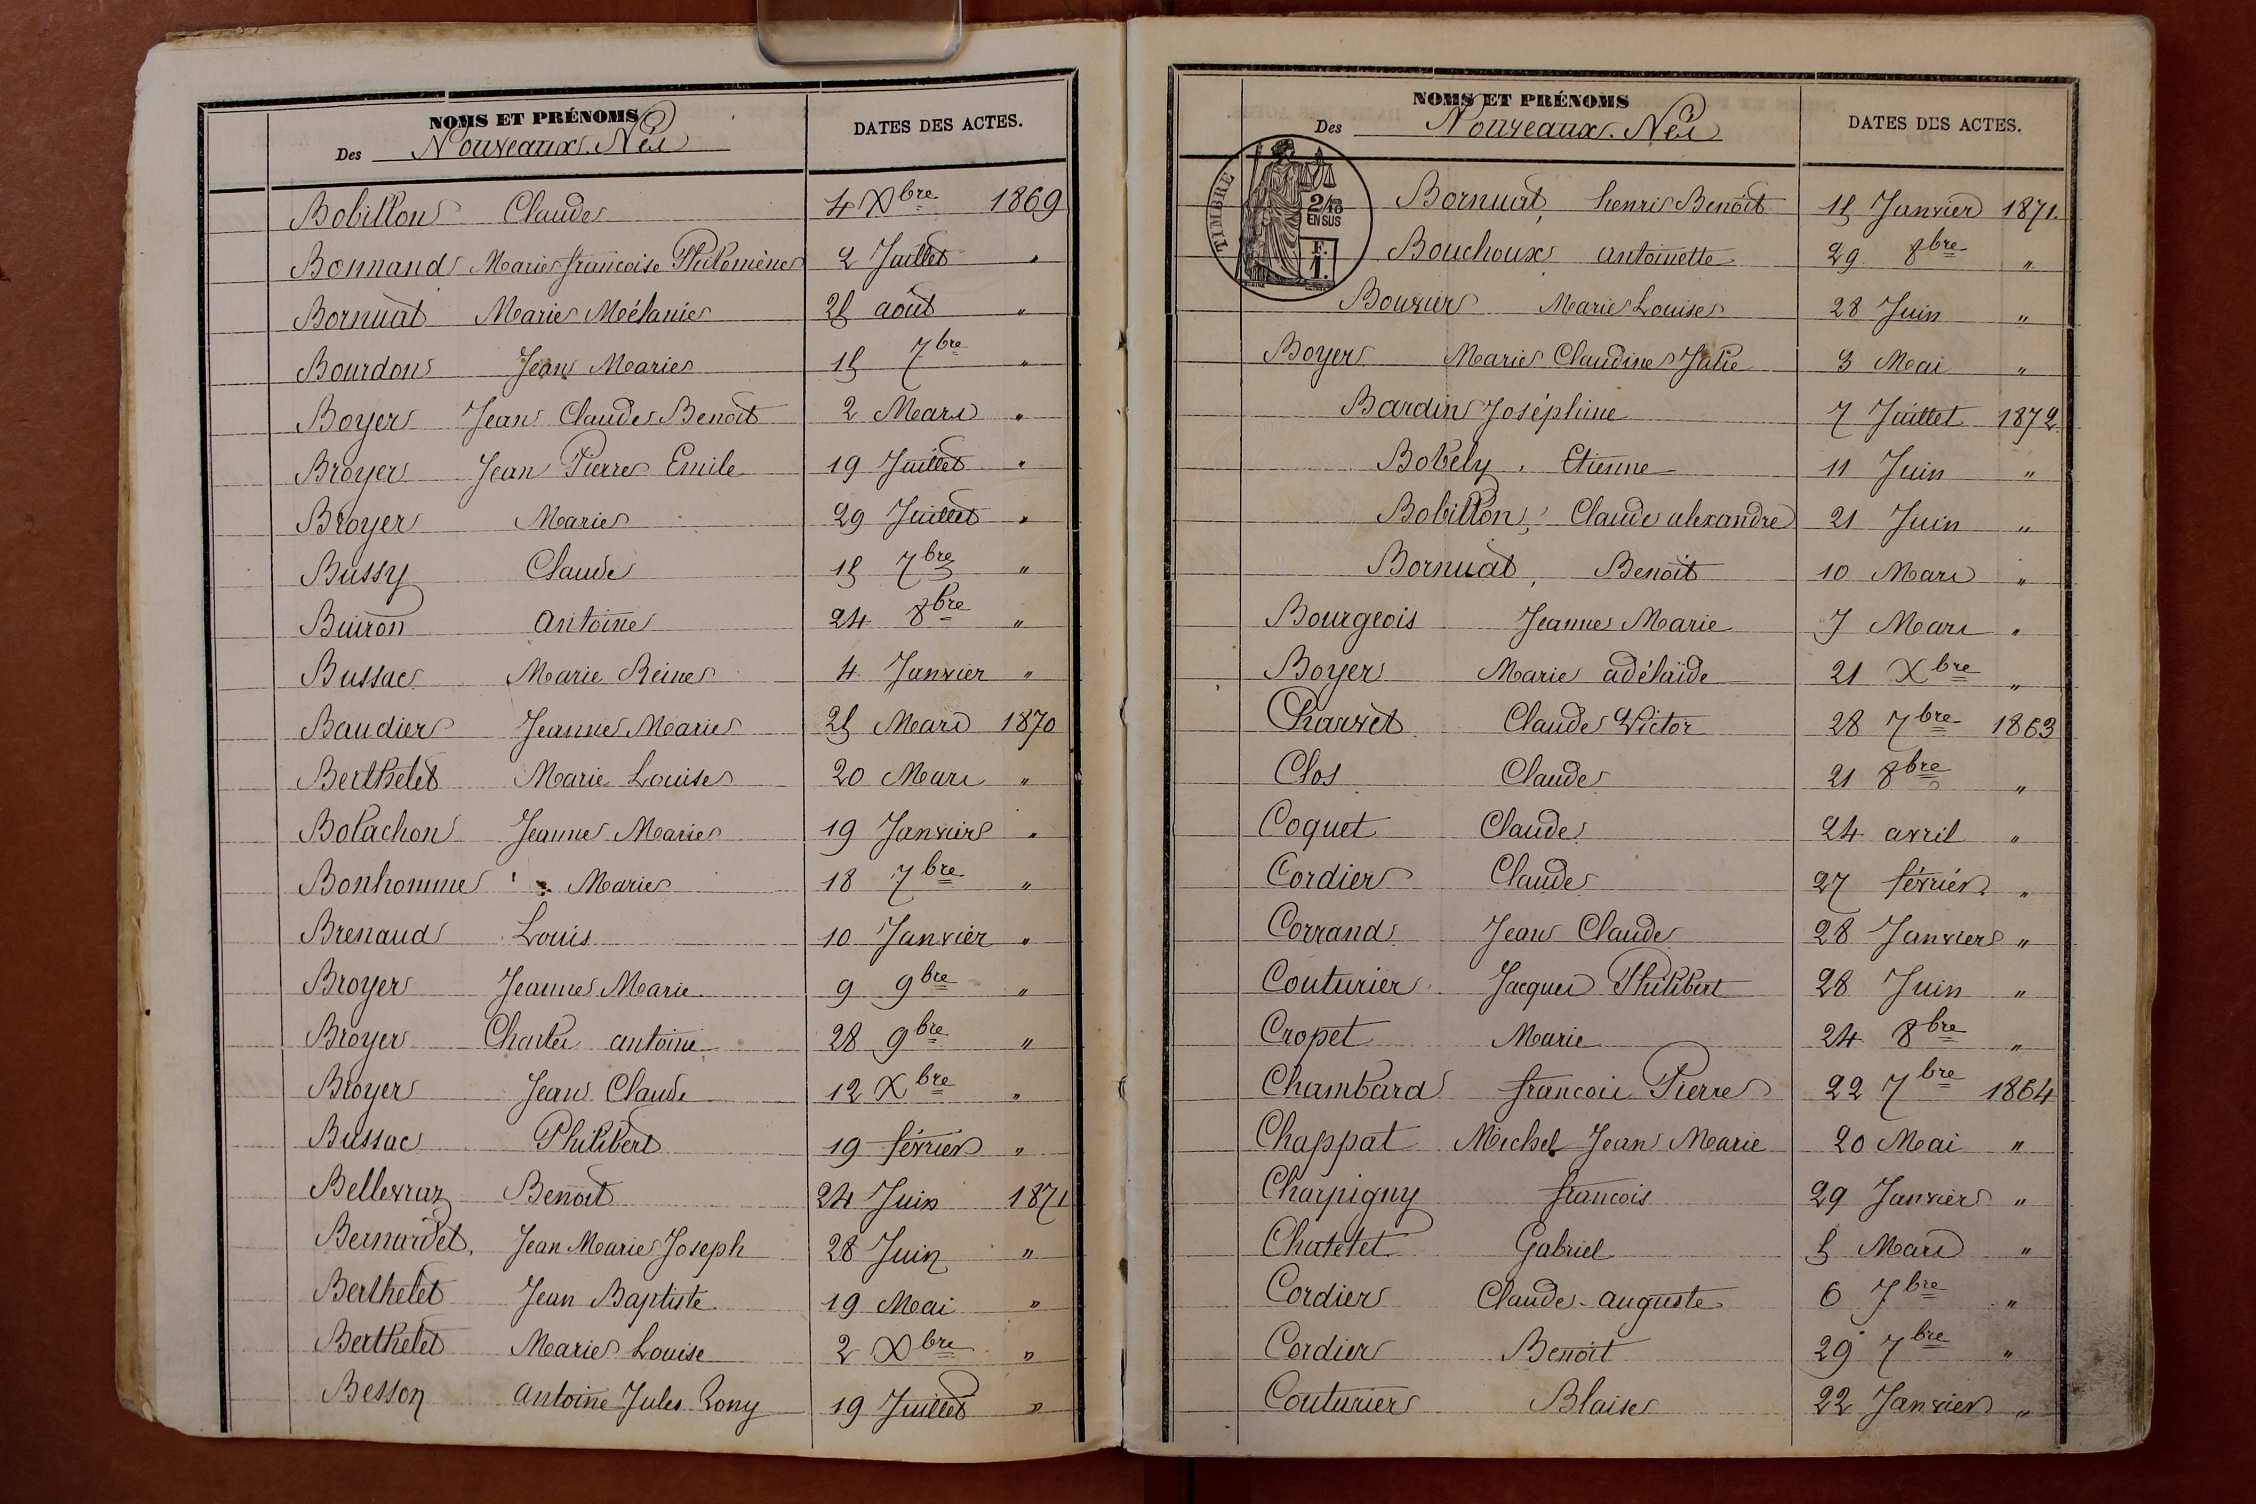 NOMS ET PRÉNOMS
Des Nouveaux Nés
DATES DES ACTES.
Bobillon Claude 4 Xbre 1869
Bonnand Marie françoise Philomène 2 Juillet "
Bornuat Marie Mélanie 25 août "
Bourdon Jean Marie 15 7bre "
Boyer Jean Claude Benoît 2 Mars "
Broyer Jean Pierre Emile 19 Juillet "
Broyer Marie 29 Juillet "
Bussy Claude 15 7bre "
Buiron antoine 24 8bre "
Bussac Marie Reine 4 Janvier "
Baudier Jeanne Marie 25 Mars 1870
Berthelet Marie Louise 20 Mars "
Bolachon Jeanne Marie 19 Janvier "
Bonhomme Marie 18 7bre "
Brenaud Louis 10 Janvier "
Broyer Jeanne Marie 9 9bre "
Broyer Charles antoine 28 9bre "
Broyer Jean Claude 12 Xbre "
Bussac Philibert 19 février "
Bellevraz Benoit 24 Juin 1871
Bernardet, Jean Marie Joseph 28 Juin "
Berthelet Jean Baptiste 19 Mai "
Berthelet Marie Louise 2 Xbre "
Besson antoine Jules Rony 19 Juillet "
NOMS ET PRÉNOMS
Des Nouveaux Nés
DATES DES ACTES.
TIMBRE
2/10
EN SUS
F.
1.
Bornuat, henri Benoît 15 Janvier 1871.
Bouchoux antoinette 29 8bre "
Bouvier Marie Louise 28 Juin "
Boyer Marie Claudine Julie 3 Mai "
Bardin Joséphine 7 Juillet 1872
Bobély, Etienne 11 Juin "
Bobillon, Claude alexandre 21 Juin "
Bornuat, Benoît 10 Mars "
Bourgeois Jeanne Marie 7 Mars "
Boyer Marie adélaïde 21 Xbre "
Charvet Claude Victor 28 7bre 1863
Clos Claude 21 8bre "
Coquet Claude 24 avril "
Cordier Claude 27 février "
Corrand Jean Claude 28 Janvier "
Couturier Jacques Philibert 28 Juin "
Cropet Marie 24 8bre "
Chambard francois Pierre 22 7bre 1864
Chappat Michel Jean Marie 20 Mai "
Charpigny francois 29 Janvier "
Chatelet Gabriel 5 Mars "
Cordier Claude auguste 6 7bre "
Cordier Benoit 29 7bre "
Couturier Blaise 22 Janvier "